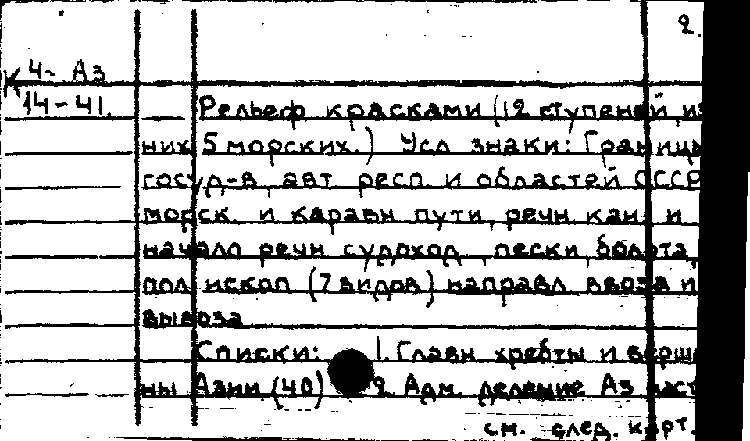 2.
К 4- Аз
14-41.
Рельеф красками (12 ступеней, из
них 5 морских.) Усл знаки: Границы
госуд-в, авт респ. и областей СССР
морск. и караван пути, речн кан. и
начало речн судоход, пески, болота,
пол ископ (7 видов) направл ввоза и
вывоза
Списки: 1. Главн хребты и верши
ны Азии (40) 2. Адм. деление Аз част
см. след. карт.